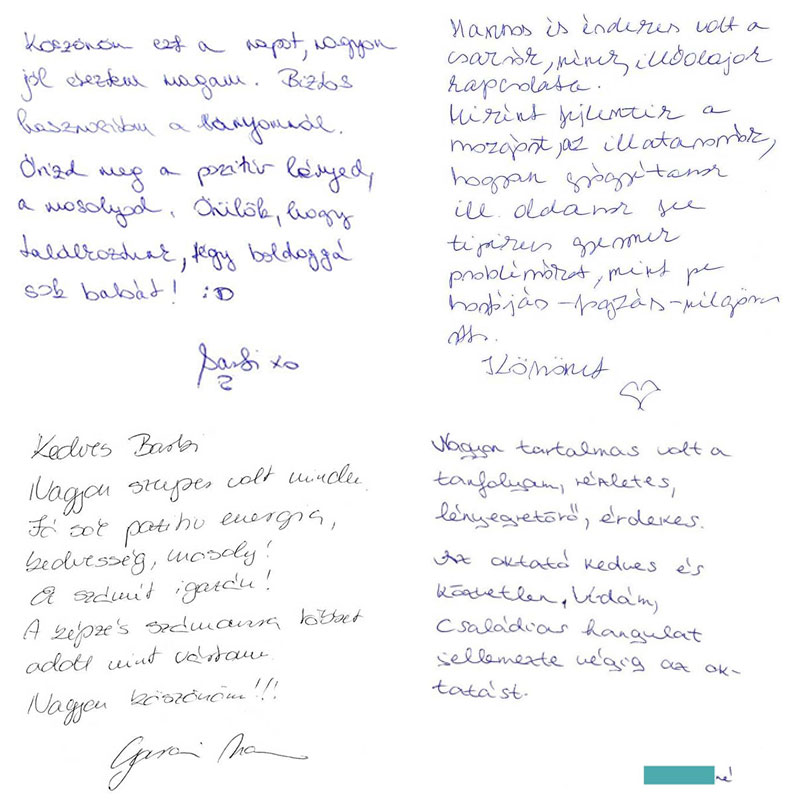 Köszönöm ezt a napot, nagyon
jól éreztem magam. Biztos
hasznosítom a lányomnál.
Őrizd meg a pozitív lényed,
a mosolyod. Örülök, hogy
találkoztunk, tégy boldoggá
sok babát! :D
Barbi xo
Hasznos és érdekes volt a
csakrák, színek, illóolajok
kapcsolata.
Miként
mozgást, az illatanyagok,
hogyan gyógyítanak
ill. oldanak
tipikus gyermek
problémákat, mint pl.
hasfájás - fogzás - nyűgös
stb.
Köszönöm
Kedves Barbi
Nagyon szuper volt minden.
Jó sok pozitív energia,
kedvesség, mosoly!
Ez számít igazán!
A képzés számomra többet
adott mint vártam.
Nagyon köszönöm!!!
Nagyon tartalmas volt a
tanfolyam, részletes,
lényegretörő, érdekes.
Az oktató kedves és
közvetlen, vidám,
családias hangulat
jellemezte végig az ok-
tatást.
né